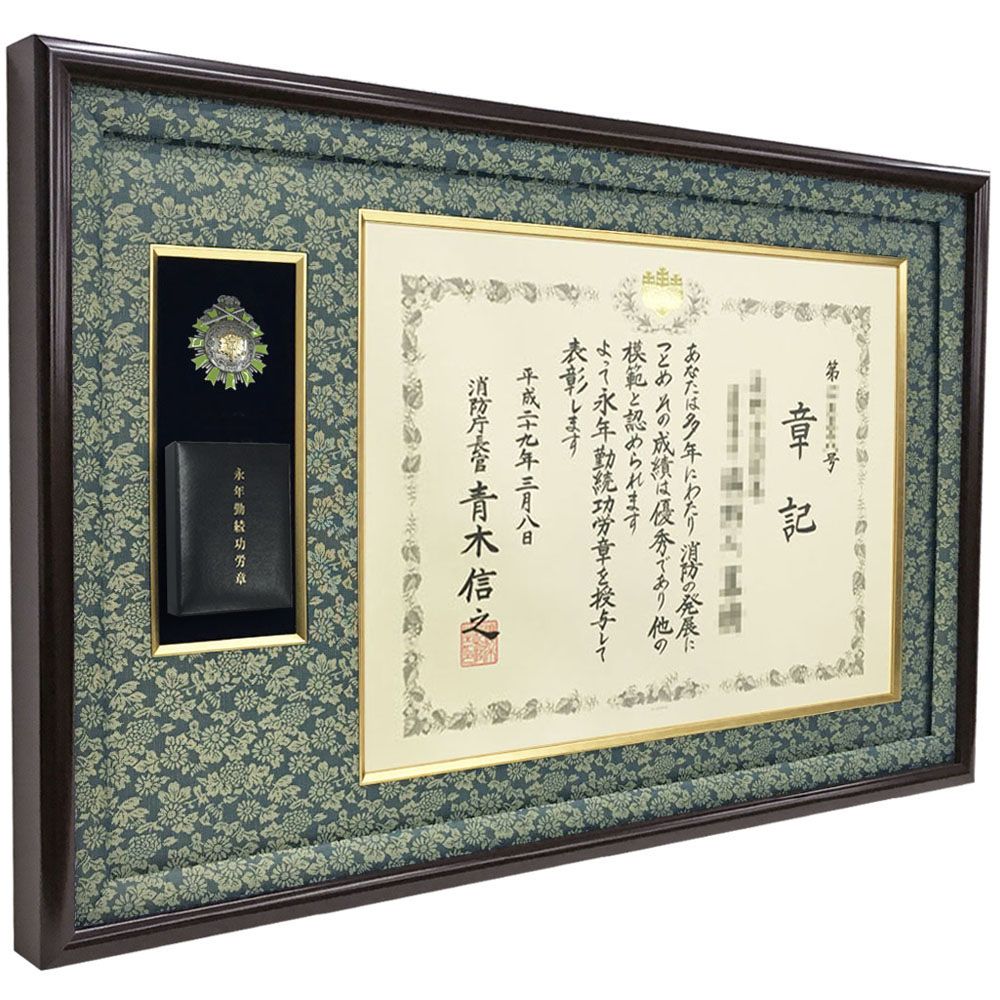 第二 号
章記
あなたは多年にわたり 消防の発展に
つとめ その成績は優秀であり 他の
模範と認められます
よって永年勤続功労章を授与して
表彰します
平成二十九年三月八日
消防庁長官 青木信之
永年勤続功労章